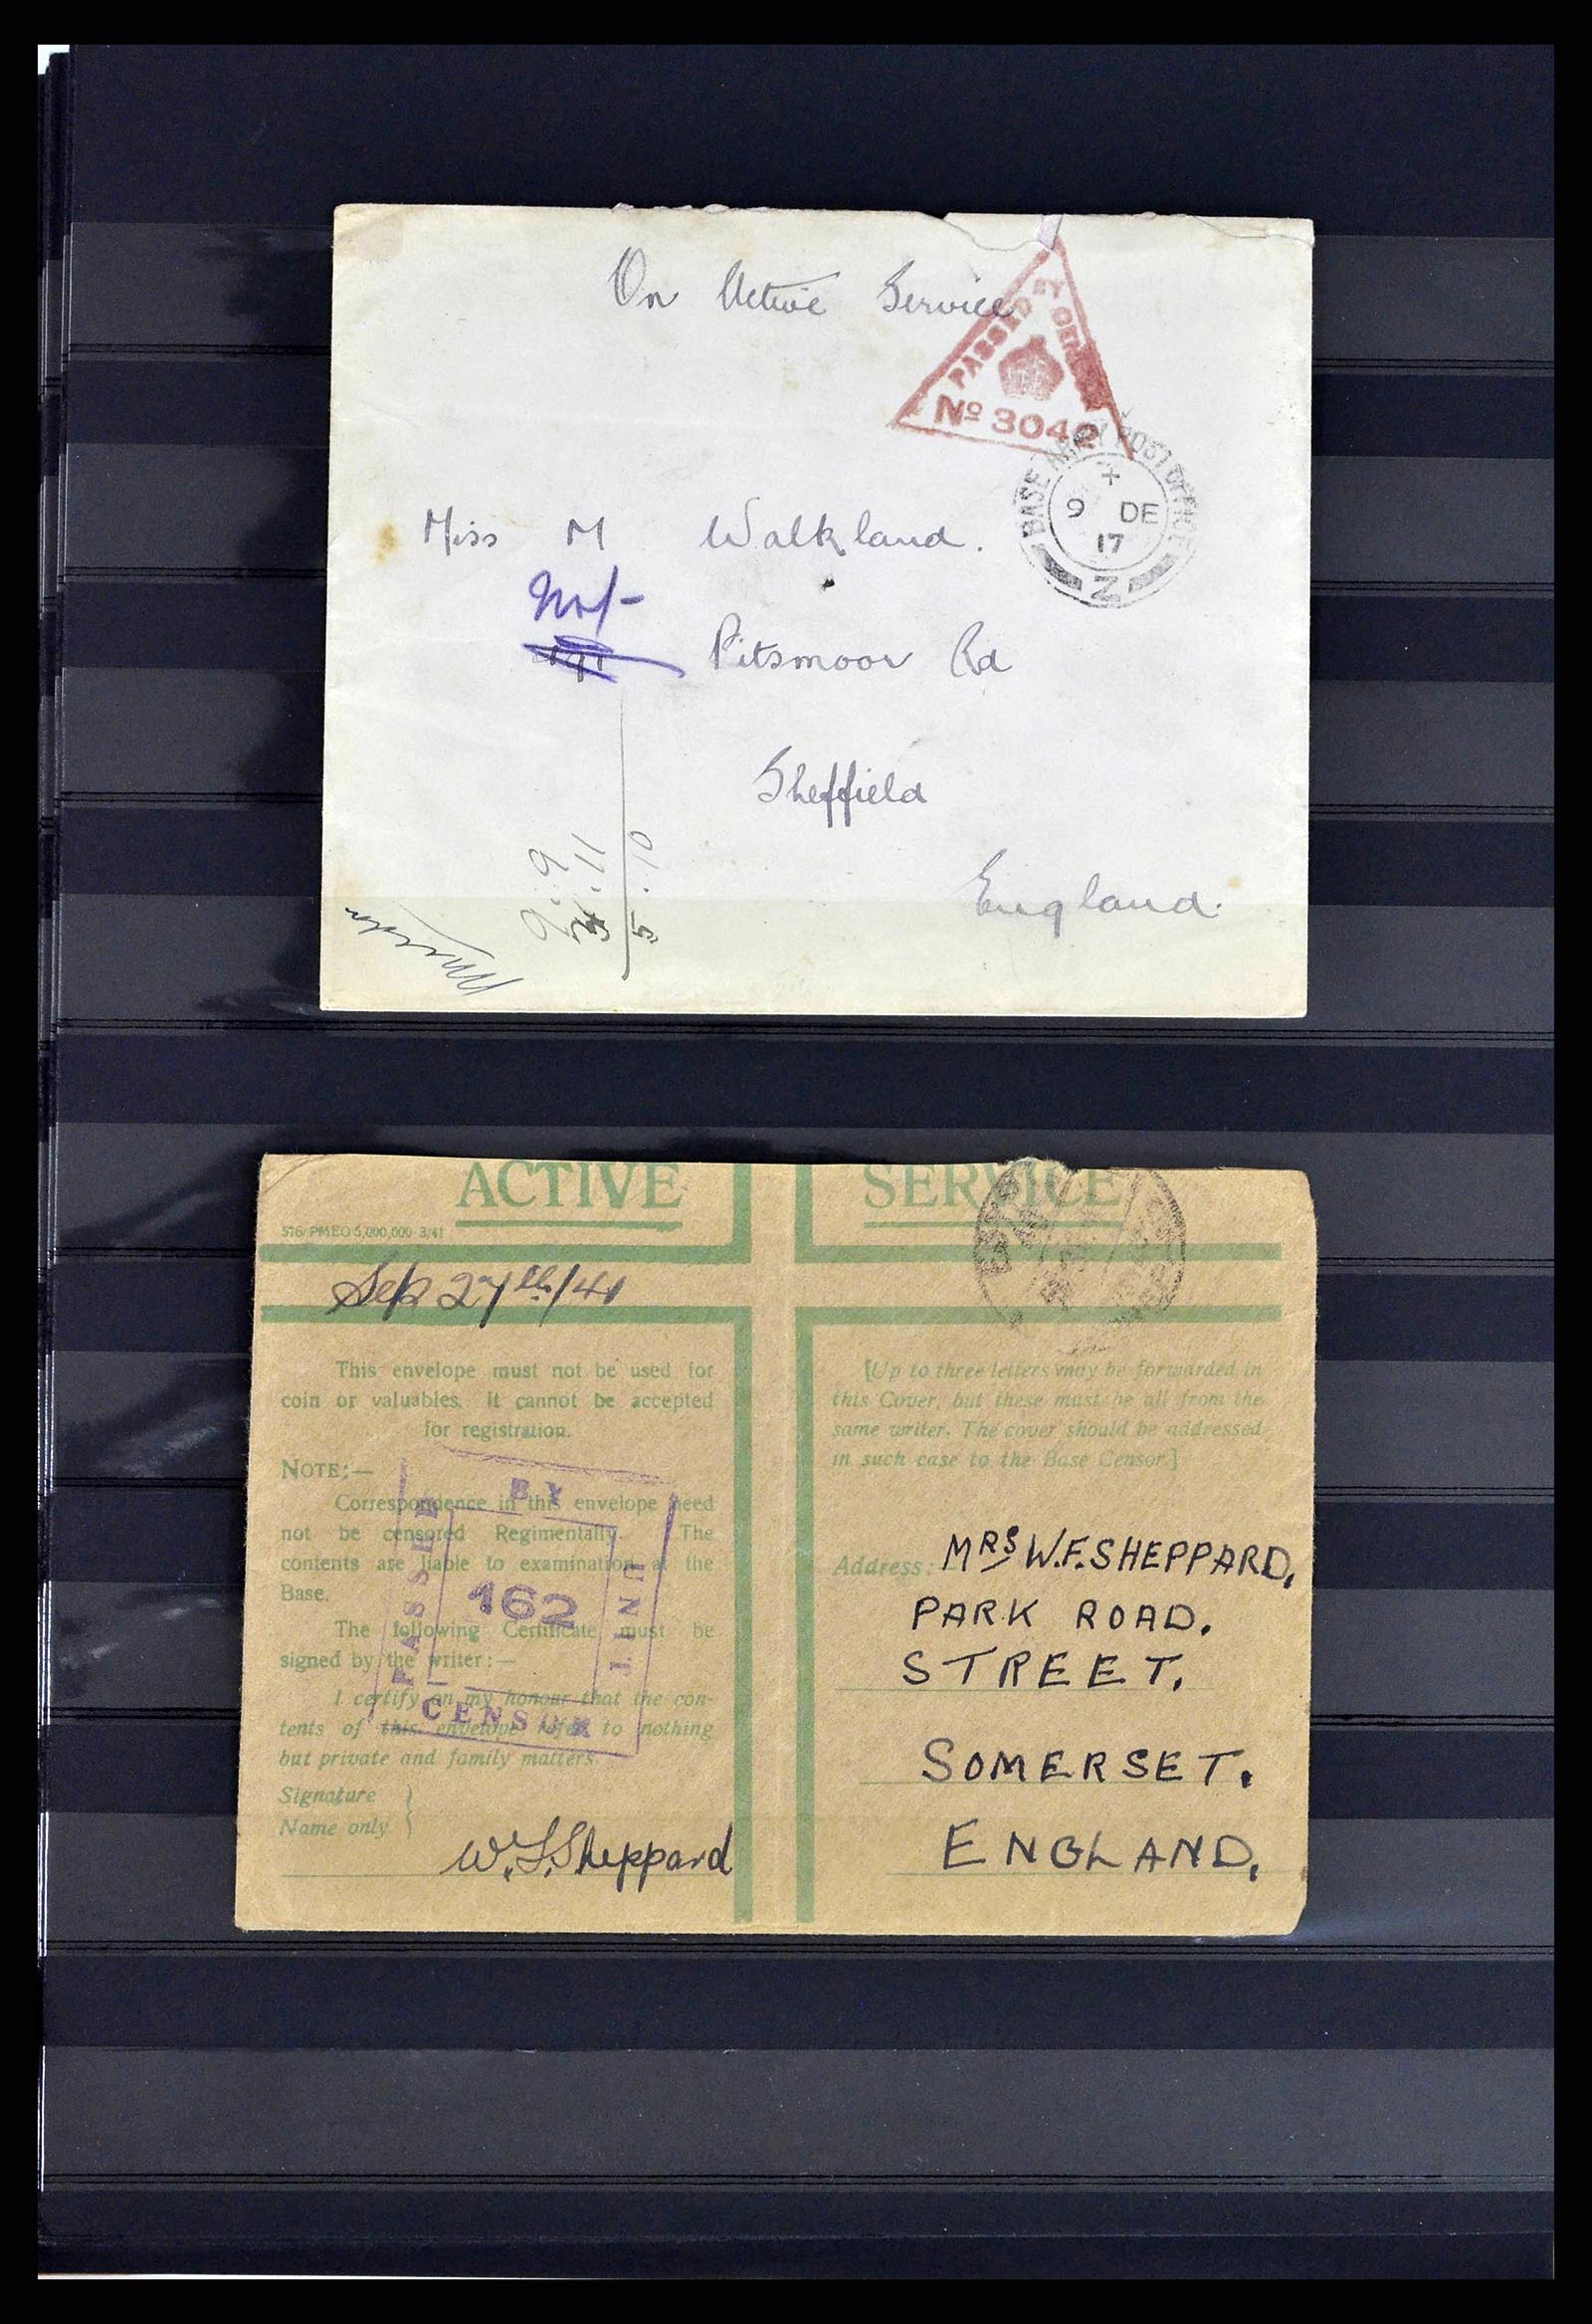 On Active Service
PASSED BY
No 3042
BASE ARMY POST OFFICE
9 DE
17
Z
Miss M Walkland.
Not
Pitsmoor Rd
Sheffield
England.
ACTIVE SERVICE
576/PMEO 5,000,000 3/41
Sep 27th/41
This envelope must not be used for
coin or valuables. It cannot be accepted
for registration.
NOTE:—
Correspondence in this envelope need
not be censored Regimentally. The
contents are liable to examination at the
Base.
The following Certificate must be
signed by the writer:—
I certify on my honour that the con-
tents of this envelope refer to nothing
but private and family matters.
Signature
Name only
W.F.Sheppard
PASSED BY UNIT CENSOR
162
[Up to three letters may be forwarded in
this Cover, but these must be all from the
same writer. The cover should be addressed
in such case to the Base Censor.]
Address: MRS W.F.SHEPPARD,
PARK ROAD.
STREET.
SOMERSET.
ENGLAND.